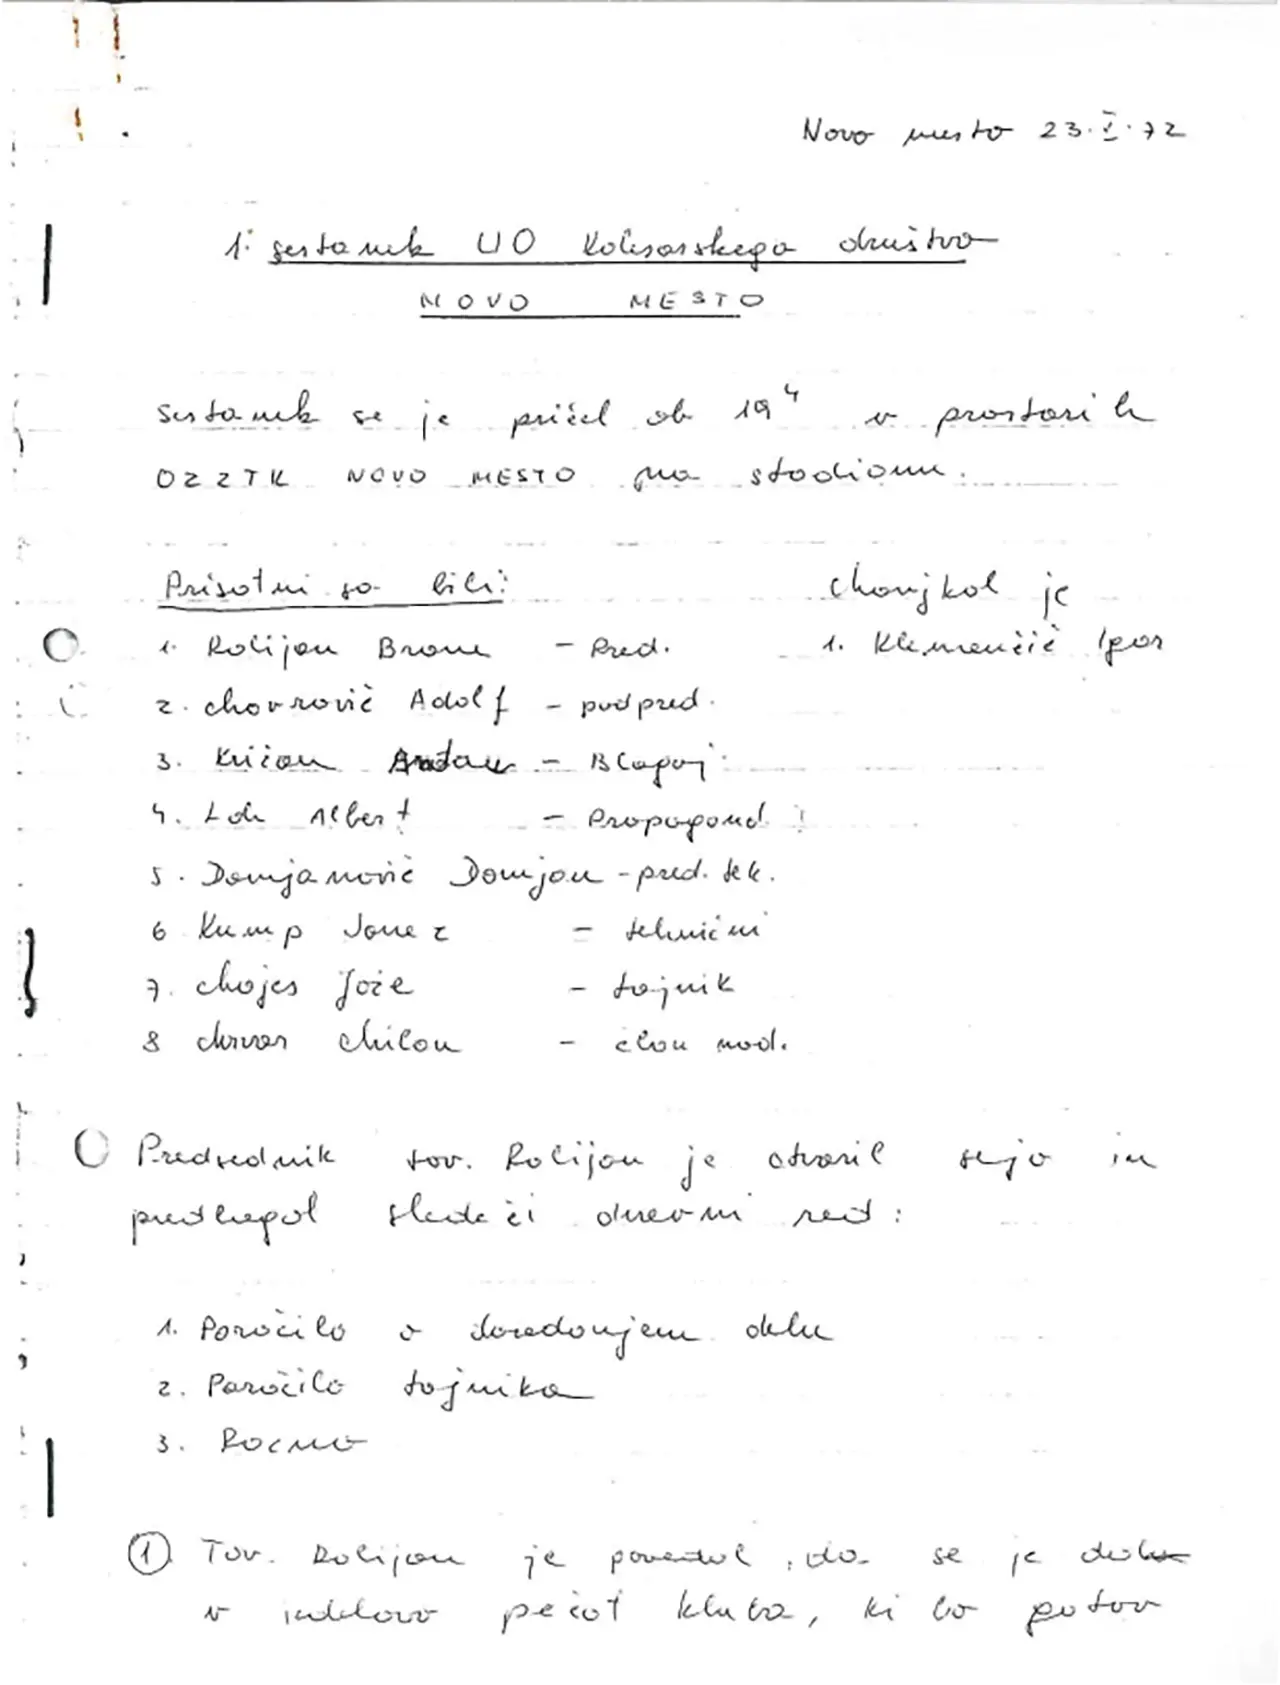 Novo mesto 23.I.72
1. sestanek UO Kolesarskega društva
NOVO MESTO
Sestanek se je pričel ob 19h v prostorih
OZZTK NOVO MESTO na stadionu.
Prisotni so bili:
Manjkal je
1. Rolijan Brane - Pred.
1. Klemenčič Igor
2. Mavrovič Adolf - podpred.
3. Križan - Blagaj.
4. Albert - Propagand.
5. Damjanovič Damjan - pred. tek.
6 Kump Janez - tehnični
7. Majes Jože - tajnik
8 Milan - član nad.
Predsednik tov. Rolijan je otvoril sejo in
predlagal sledeči dnevni red:
1. Poročilo o dosedanjem delu
2. Poročilo tajnika
3. Razno
1 Tov. Rolijan je povedal, da se je
v izdelavo pečat kluba, ki bo gotov